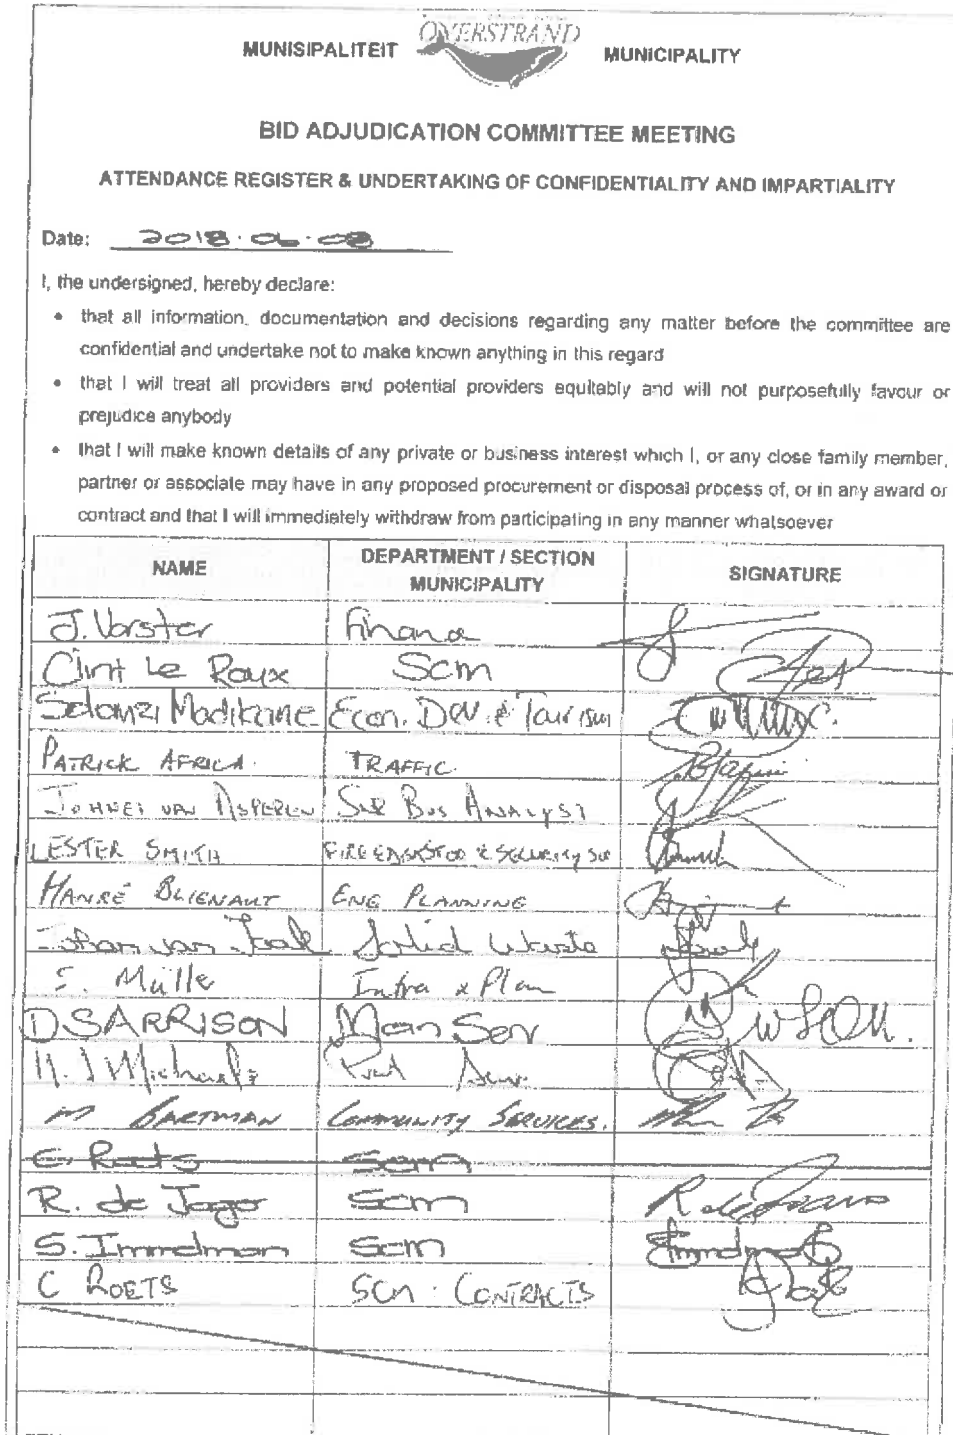 MUNISIPALITEIT OVERSTRAND MUNICIPALITY
BID ADJUDICATION COMMITTEE MEETING
ATTENDANCE REGISTER & UNDERTAKING OF CONFIDENTIALITY AND IMPARTIALITY
Date: 2018.06.08
I, the undersigned, hereby declare:
• that all information, documentation and decisions regarding any matter before the committee are
confidential and undertake not to make known anything in this regard
• that I will treat all providers and potential providers equitably and will not purposefully favour or
prejudice anybody
• that I will make known details of any private or business interest which I, or any close family member,
partner or associate may have in any proposed procurement or disposal process of, or in any award or
contract and that I will immediately withdraw from participating in any manner whatsoever
NAME DEPARTMENT / SECTION MUNICIPALITY SIGNATURE
J. Vorster Finance
Clint Le Roux SCM
Madikane Econ. Dev. & Tourism
PATRICK AFRICA. TRAFFIC.
JOHNET VAN ASPEREN SNR BUS ANALYST
LESTER SMITH FIRE & SECURITY
HANRÉ BLIENAUT ENG PLANNING
Johan van Taak Solid Waste
F. Müller Infra & Plan
D SARRISON Man Serv
Michaels
M BARTMAN COMMUNITY SERVICES.
C. Roets SCM
R. de Jager SCM
S. Immelman SCM
C ROETS SCM : CONTRACTS